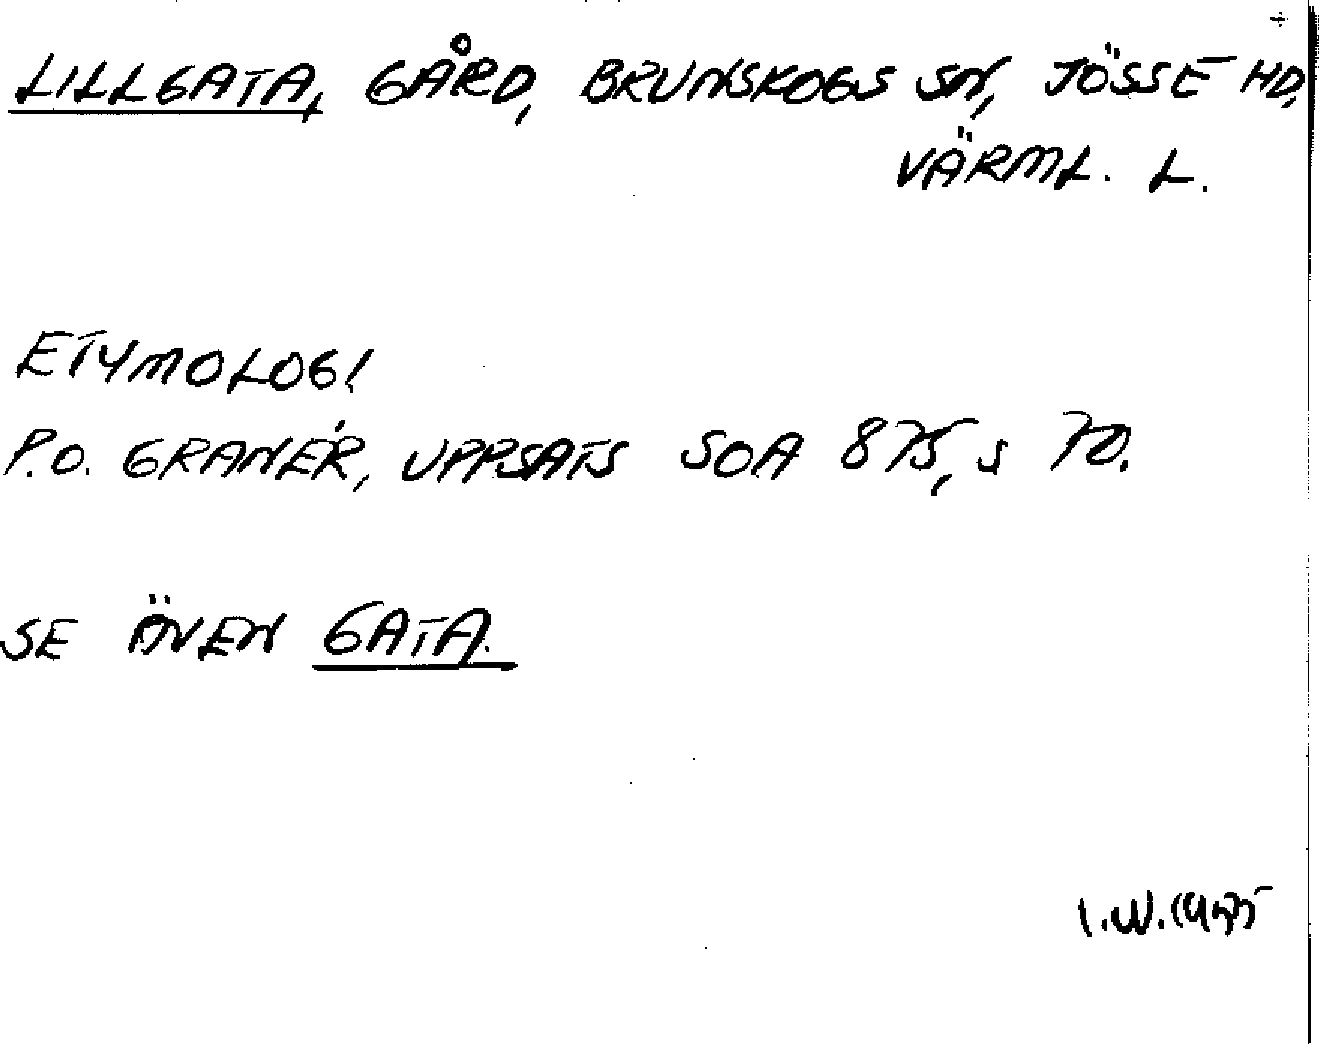 LILLGATA, GÅRD, BRUNSKOGS SN, JÖSSE HD,
VÄRML. L.
ETYMOLOGI
P.O. GRANÉR, UPPSATS SOA 875, S 70.
SE ÄVEN GATA.
I.W. 1975